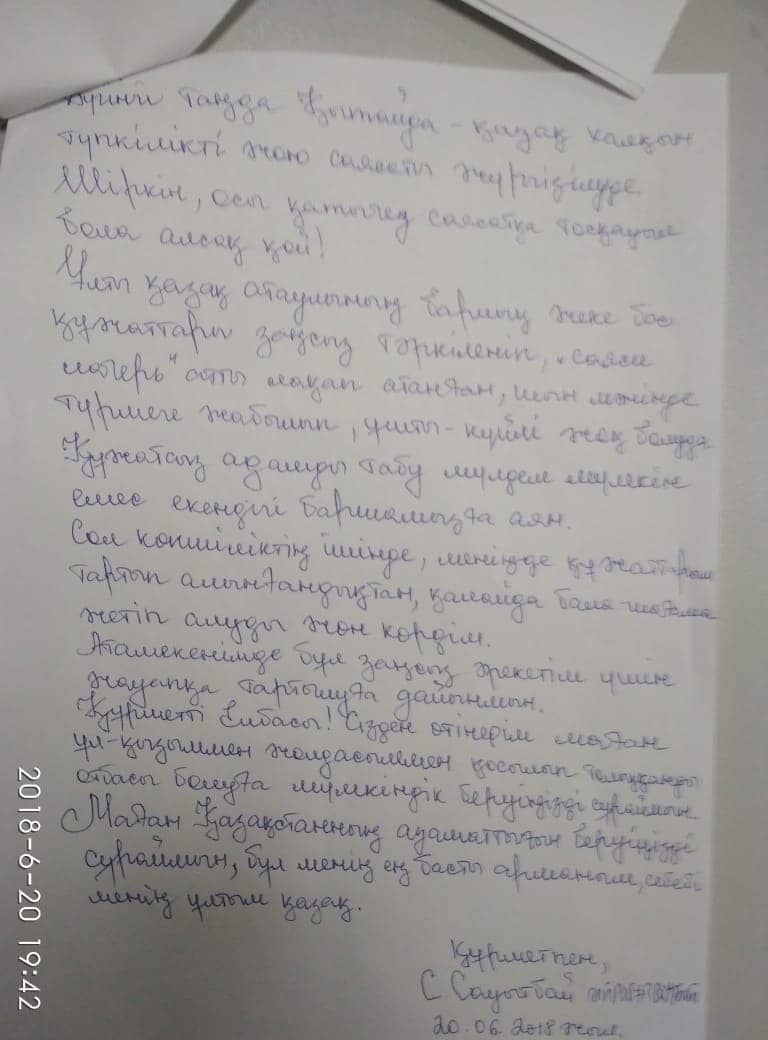 Бүгінгі таңда Қытайда - қазақ халқын
түпкілікті жою саясаты жүргізілуде.
Шіркін, осы қатыгез саясатқа тосқауыл
бола алсақ қой!
Ұлты қазақ атаулының барлық жеке бас
құжаттары заңсыз тәркіленіп, „саяси
лагерь" атты лақап атанған, шын мәнінде
түрмеге жабылып, үшті-күйлі жоқ болуда.
Құжатсыз адамды табу мүлдем мүмкін
емес екендігі баршамызға аян.
Сол көпшіліктің ішінде, меніңде құжаттарым
тартып алынғандықтан, қалайда бала-шағама
жетіп алуды жөн көрдім.
Атамекенімде бұл заңсыз әрекетім үшін
жауапқа тартылуға дайынмын.
Құрметті Елбасы! Сізден өтінерім маған
ұл-қызыммен жолдасыммен қосылып толыққанды
отбасы болуға мүмкіндік беруіңізді сұраймын.
Маған Қазақстанның азаматтығын беруіңізді
сұраймын, бұл менің ең басты арманым, себебі
менің ұлтым қазақ.
Құрметпен,
С. Сауытбай
20.06.2018 жыл.
2018-6-20 19:42